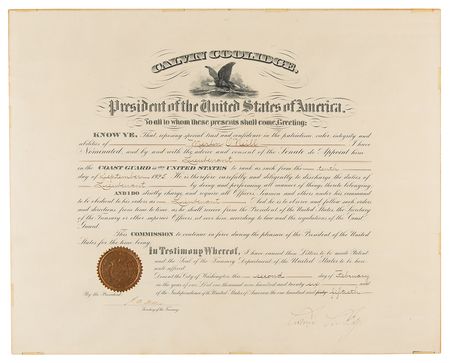 CALVIN COOLIDGE,
President of the United States of America.
To all to whom these presents shall come, Greeting:
KNOW YE, That reposing special trust and confidence in the patriotism, valor, integrity and
abilities of I have
Nominated, and by and with the advice and consent of the Senate do Appoint him
Lieutenant
in the COAST GUARD of the UNITED STATES to rank as such from the tenth
day of September 1925 He is therefore carefully and diligently to discharge the duties of
Lieutenant by doing and performing all manner of things thereto belonging
AND I DO strictly charge, and require all Officers, Seamen and others under his command
to be obedient to his orders as Lieutenant And he is to observe and follow such orders
and directions from time to time as he shall receive from the President of the United States, the Secretary
of the Treasury or other superior Officers set over him, according to law and the regulations of the Coast
Guard.
This COMMISSION to continue in force during the pleasure of the President of the United
States for the time being.
In Testimony Whereof, I have caused these Letters to be made Patent
and the Seal of the Treasury Department of the United States to be here-
unto affixed.
Done at the City of Washington this second day of February
in the year of our Lord one thousand nine hundred and twenty six and
of the Independence of the United States of America the one hundred and fiftieth
By the President:
Secretary of the Treasury.